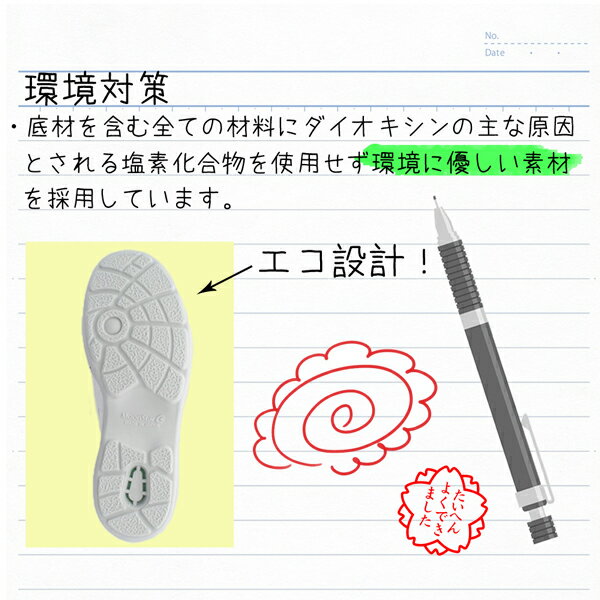 No.
Date ・ ・
環境対策
・底材を含む全ての材料にダイオキシンの主な原因
とされる塩素化合物を使用せず環境に優しい素材
を採用しています。
エコ設計！
たいへん
よくでき
ました